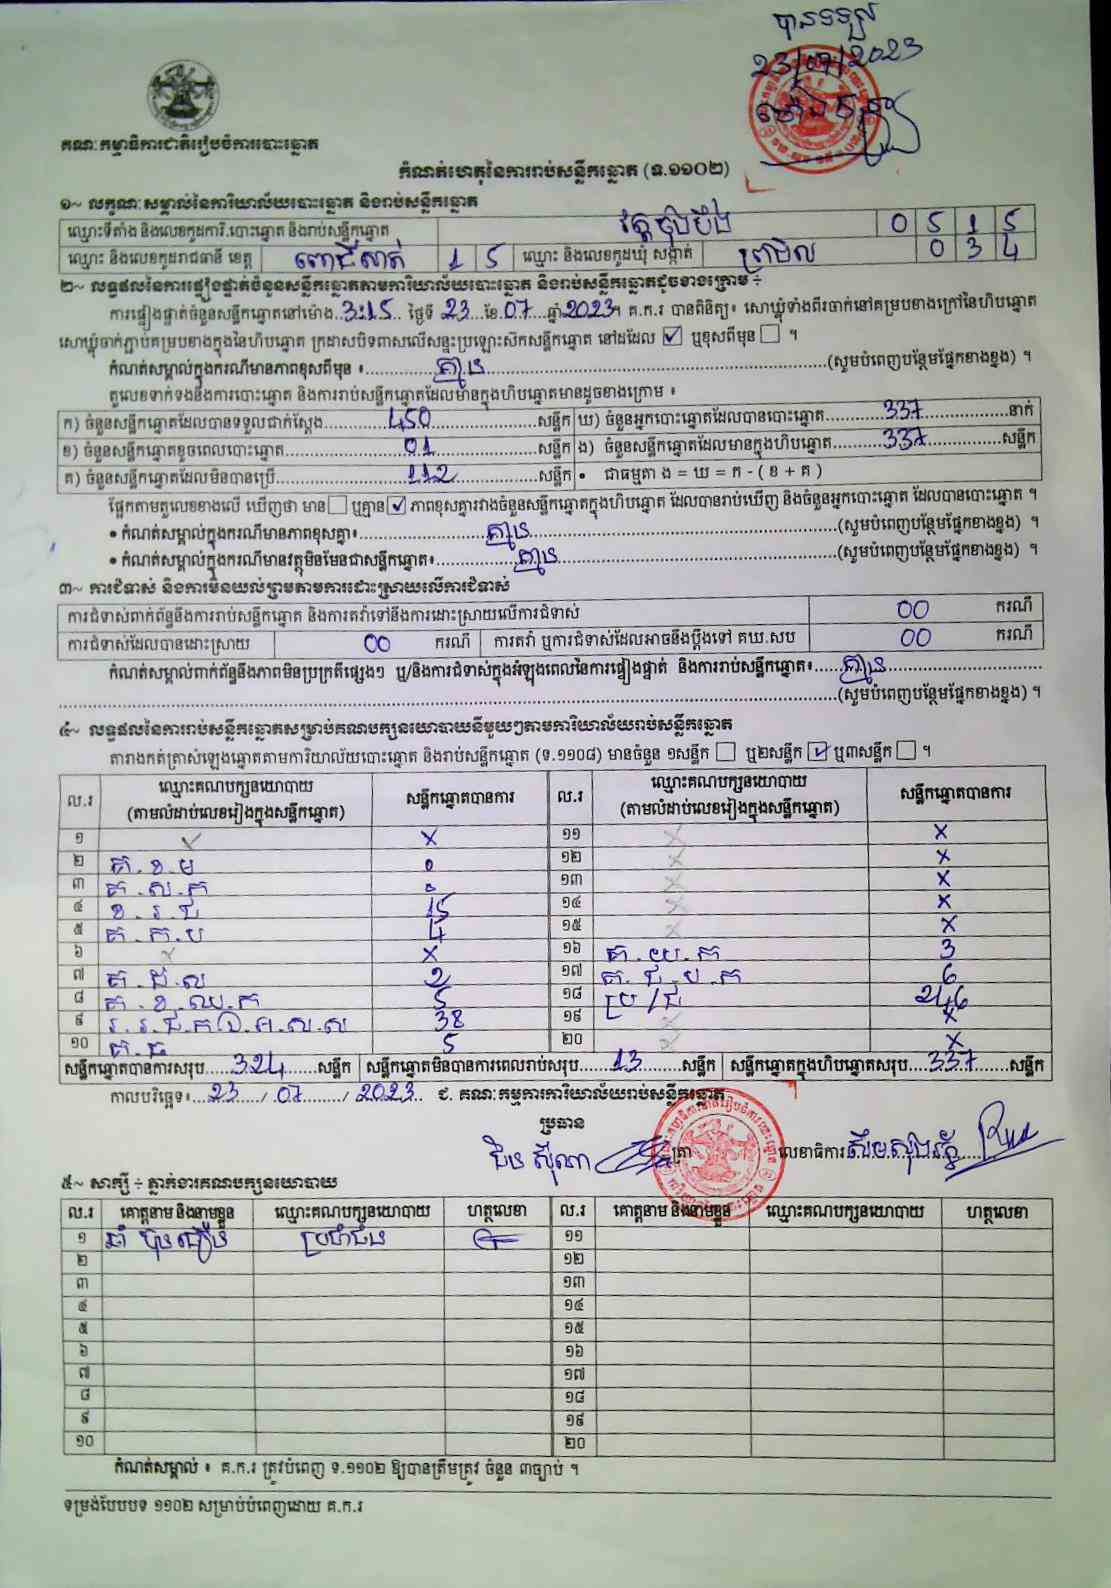 បានទទួល
23/07/2023
គណៈកម្មាធិការជាតិរៀបចំការបោះឆ្នោត
កំណត់ហេតុនៃការរាប់សន្លឹកឆ្នោត (ទ.១១០២)
១~ លក្ខណៈសម្គាល់នៃការិយាល័យបោះឆ្នោត និងរាប់សន្លឹកឆ្នោត
ឈ្មោះទីតាំង និងលេខកូដការិ.បោះឆ្នោត និងរាប់សន្លឹកឆ្នោត វត្តចុងបឹង 0 5 1 5
ឈ្មោះ និងលេខកូដរាជធានី ខេត្ត ពោធិ៍សាត់ 1 5 ឈ្មោះ និងលេខកូដឃុំ សង្កាត់ 0 3 4
២~ លទ្ធផលនៃការផ្ទៀងផ្ទាត់ចំនួនសន្លឹកឆ្នោតតាមការិយាល័យបោះឆ្នោត និងរាប់សន្លឹកឆ្នោតដូចខាងក្រោម ÷
ការផ្ទៀងផ្ទាត់ចំនួនសន្លឹកឆ្នោតនៅម៉ោង..3:15.. ថ្ងៃទី 23 ខែ 07 ឆ្នាំ 2023។ គ.ក.រ បានពិនិត្យ៖ សោឃ្លុំទាំងពីរចាក់នៅគម្របខាងក្រៅនៃហិបឆ្នោត
សោឃ្លុំចាក់ភ្ជាប់គម្របខាងក្នុងនៃហិបឆ្នោត ក្រដាសបិទពាសលើសន្ទះប្រឡោះស៊កសន្លឹកឆ្នោត នៅដដែល ☑ ឬខុសពីមុន ☐ ។
កំណត់សម្គាល់ក្នុងករណីមានភាពខុសពីមុន ៖ គ្មាន (សូមបំពេញបន្ថែមផ្នែកខាងខ្នង) ។
តួលេខទាក់ទងនឹងការបោះឆ្នោត និងការរាប់សន្លឹកឆ្នោតដែលមានក្នុងហិបឆ្នោតមានដូចខាងក្រោម ៖
ក) ចំនួនសន្លឹកឆ្នោតដែលបានទទួលជាក់ស្តែង 450 សន្លឹក ឃ) ចំនួនអ្នកបោះឆ្នោតដែលបានបោះឆ្នោត 337 នាក់
ខ) ចំនួនសន្លឹកឆ្នោតខូចពេលបោះឆ្នោត 01 សន្លឹក ង) ចំនួនសន្លឹកឆ្នោតដែលមានក្នុងហិបឆ្នោត 337 សន្លឹក
គ) ចំនួនសន្លឹកឆ្នោតដែលមិនបានប្រើ 112 សន្លឹក • ជាធម្មតា ង = ឃ = ក - ( ខ + គ )
ផ្អែកតាមតួលេខខាងលើ ឃើញថា មាន ☐ ឬគ្មាន ☑ ភាពខុសគ្នារវាងចំនួនសន្លឹកឆ្នោតក្នុងហិបឆ្នោត ដែលបានរាប់ឃើញ និងចំនួនអ្នកបោះឆ្នោត ដែលបានបោះឆ្នោត ។
• កំណត់សម្គាល់ក្នុងករណីមានភាពខុសគ្នា៖ គ្មាន (សូមបំពេញបន្ថែមផ្នែកខាងខ្នង) ។
• កំណត់សម្គាល់ក្នុងករណីមានវត្ថុមិនមែនជាសន្លឹកឆ្នោត៖ គ្មាន (សូមបំពេញបន្ថែមផ្នែកខាងខ្នង) ។
៣~ ការជំទាស់ និងការមិនយល់ព្រមតាមការដោះស្រាយលើការជំទាស់
ការជំទាស់ពាក់ព័ន្ធនឹងការរាប់សន្លឹកឆ្នោត និងការតវ៉ាទៅនឹងការដោះស្រាយលើការជំទាស់ 00 ករណី
ការជំទាស់ដែលបានដោះស្រាយ 00 ករណី ការតវ៉ា ឬការជំទាស់ដែលអាចនឹងប្តឹងទៅ គឃ.សប 00 ករណី
កំណត់សម្គាល់ពាក់ព័ន្ធនឹងភាពមិនប្រក្រតីផ្សេងៗ ឬ/និងការជំទាស់ក្នុងអំឡុងពេលនៃការផ្ទៀងផ្ទាត់ និងការរាប់សន្លឹកឆ្នោត៖ គ្មាន
(សូមបំពេញបន្ថែមផ្នែកខាងខ្នង) ។
៤~ លទ្ធផលនៃការរាប់សន្លឹកឆ្នោតសម្រាប់គណបក្សនយោបាយនីមួយៗតាមការិយាល័យរាប់សន្លឹកឆ្នោត
តារាងកត់ត្រាសំឡេងឆ្នោតតាមការិយាល័យបោះឆ្នោត និងរាប់សន្លឹកឆ្នោត (ទ.១១០៨) មានចំនួន ១សន្លឹក ☐ ឬ២សន្លឹក ☑ ឬ៣សន្លឹក ☐ ។
ល.រ ឈ្មោះគណបក្សនយោបាយ (តាមលំដាប់លេខរៀងក្នុងសន្លឹកឆ្នោត) សន្លឹកឆ្នោតបានការ ល.រ ឈ្មោះគណបក្សនយោបាយ (តាមលំដាប់លេខរៀងក្នុងសន្លឹកឆ្នោត) សន្លឹកឆ្នោតបានការ
១ x x ១១ x x
២ គ.ខ.ម 0 ១២ x x
៣ គ.ស.ក 0 ១៣ x x
៤ ខ.រ.ជ 15 ១៤ x x
៥ គ.ក.ប 4 ១៥ x x
៦ x x ១៦ គ.យ.ក 3
៧ គ.ដ.ស 2 ១៧ គ.ជ.ប.ក 6
៨ គ.ខ.ឈ.ក 5 ១៨ ប្រ/ជ 246
៩ 38 ១៩ x x
១០ គ.ធ 5 ២០ x x
សន្លឹកឆ្នោតបានការសរុប 324 សន្លឹក សន្លឹកឆ្នោតមិនបានការពេលរាប់សរុប 13 សន្លឹក សន្លឹកឆ្នោតក្នុងហិបឆ្នោតសរុប 337 សន្លឹក
កាលបរិច្ឆេទ៖ 23 / 07 / 2023 ជ. គណៈកម្មការការិយាល័យរាប់សន្លឹកឆ្នោត
ប្រធាន
ត្រា លេខាធិការ
៥~ សាក្សី ÷ ភ្នាក់ងារគណបក្សនយោបាយ
ល.រ គោត្តនាម និងនាមខ្លួន ឈ្មោះគណបក្សនយោបាយ ហត្ថលេខា ល.រ គោត្តនាម និងនាមខ្លួន ឈ្មោះគណបក្សនយោបាយ ហត្ថលេខា
១ ប្រជាជន ១១
២ ១២
៣ ១៣
៤ ១៤
៥ ១៥
៦ ១៦
៧ ១៧
៨ ១៨
៩ ១៩
១០ ២០
កំណត់សម្គាល់ ៖ គ.ក.រ ត្រូវបំពេញ ទ.១១០២ ឱ្យបានត្រឹមត្រូវ ចំនួន ៣ច្បាប់ ។
ទម្រង់បែបបទ ១១០២ សម្រាប់បំពេញដោយ គ.ក.រ